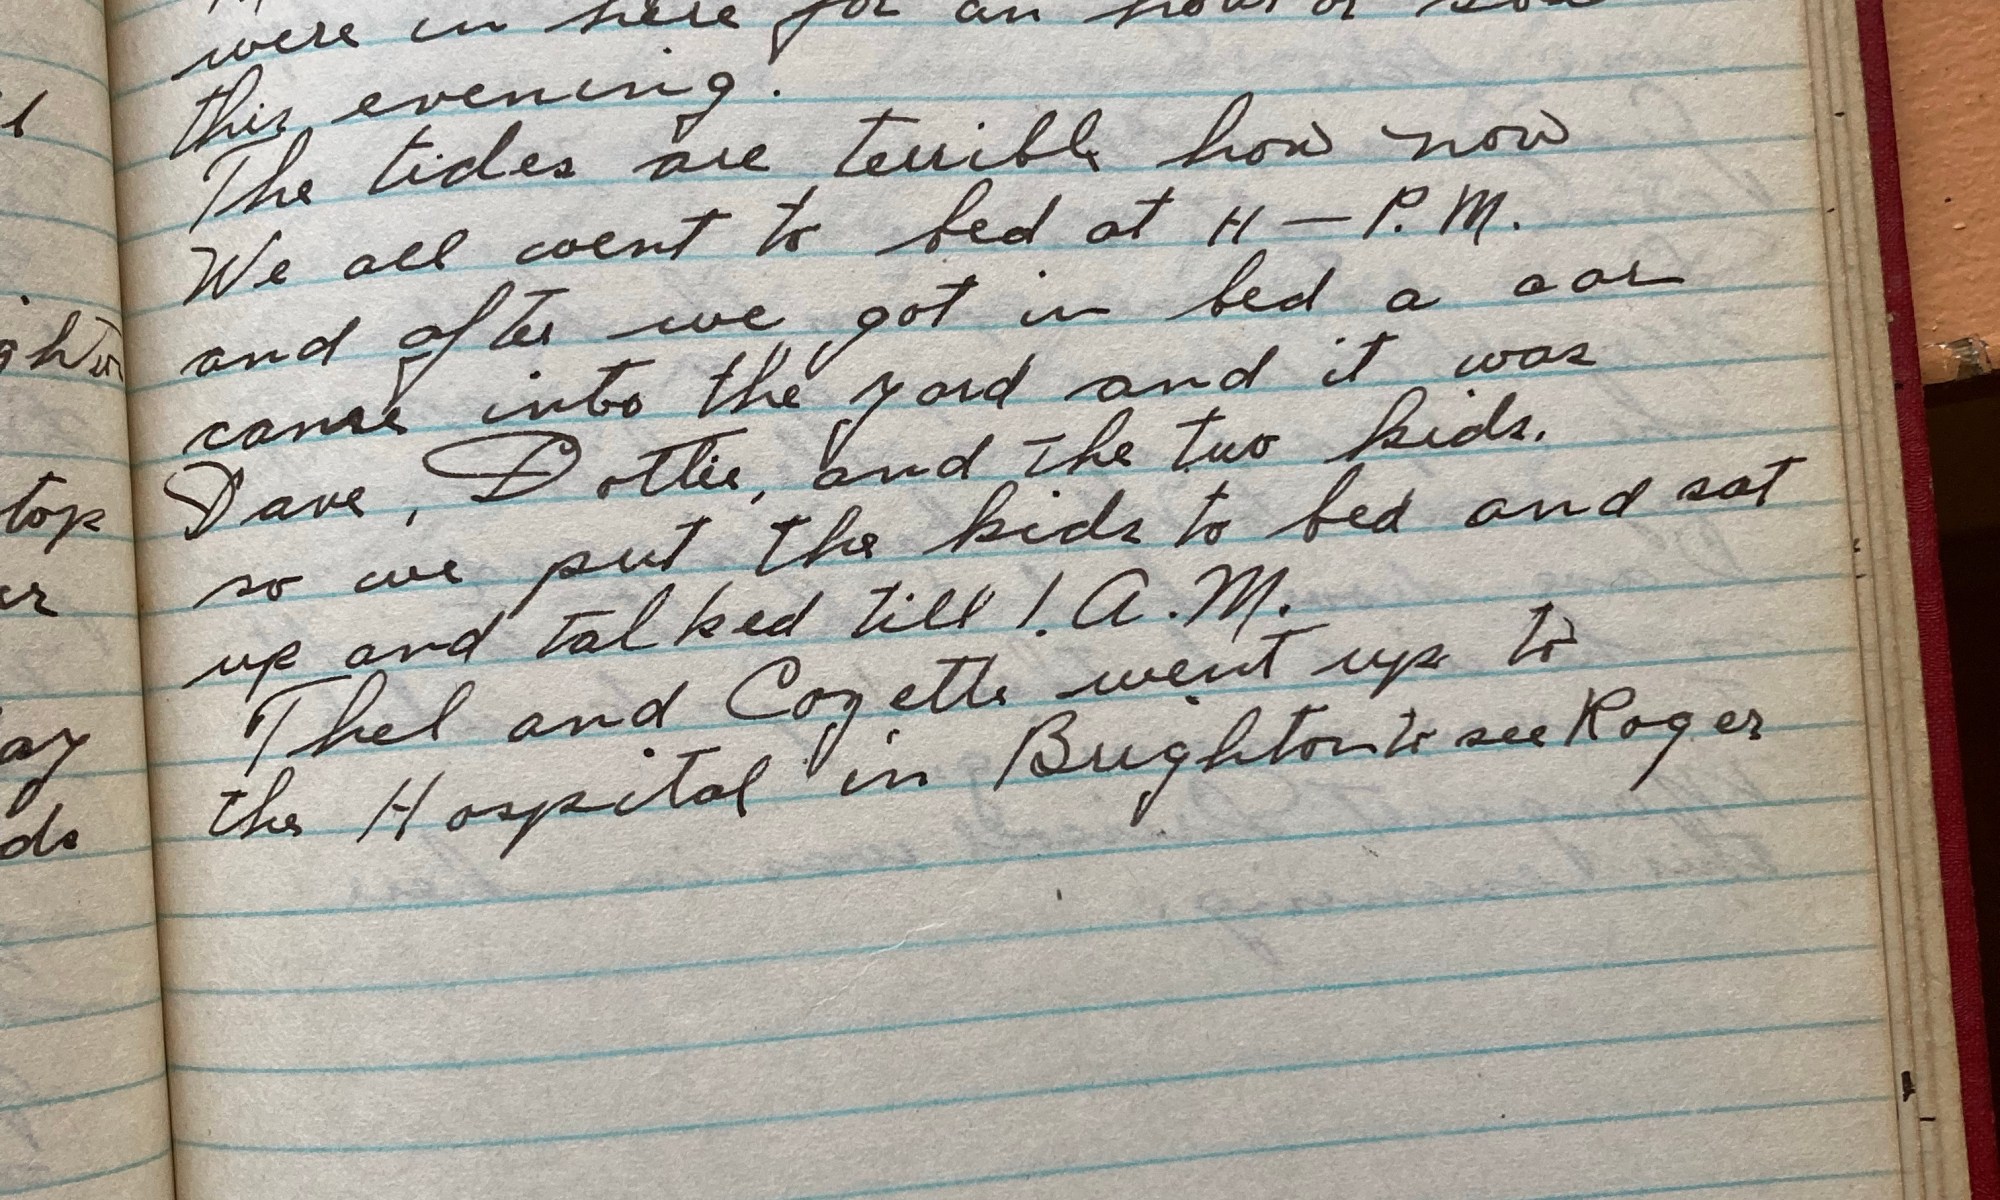 were in here for an hour or so
this evening.
The tides are terrible how now
We all went to bed at 11 - P.M.
and after we got in bed a car
came into the yard and it was
Dave, Dottie, and the two kids.
so we put the kids to bed and sat
up and talked till 1. A.M.
Thel and Cozette went up to
the Hospital in Brighton to see Roger
top
er
ay
ds